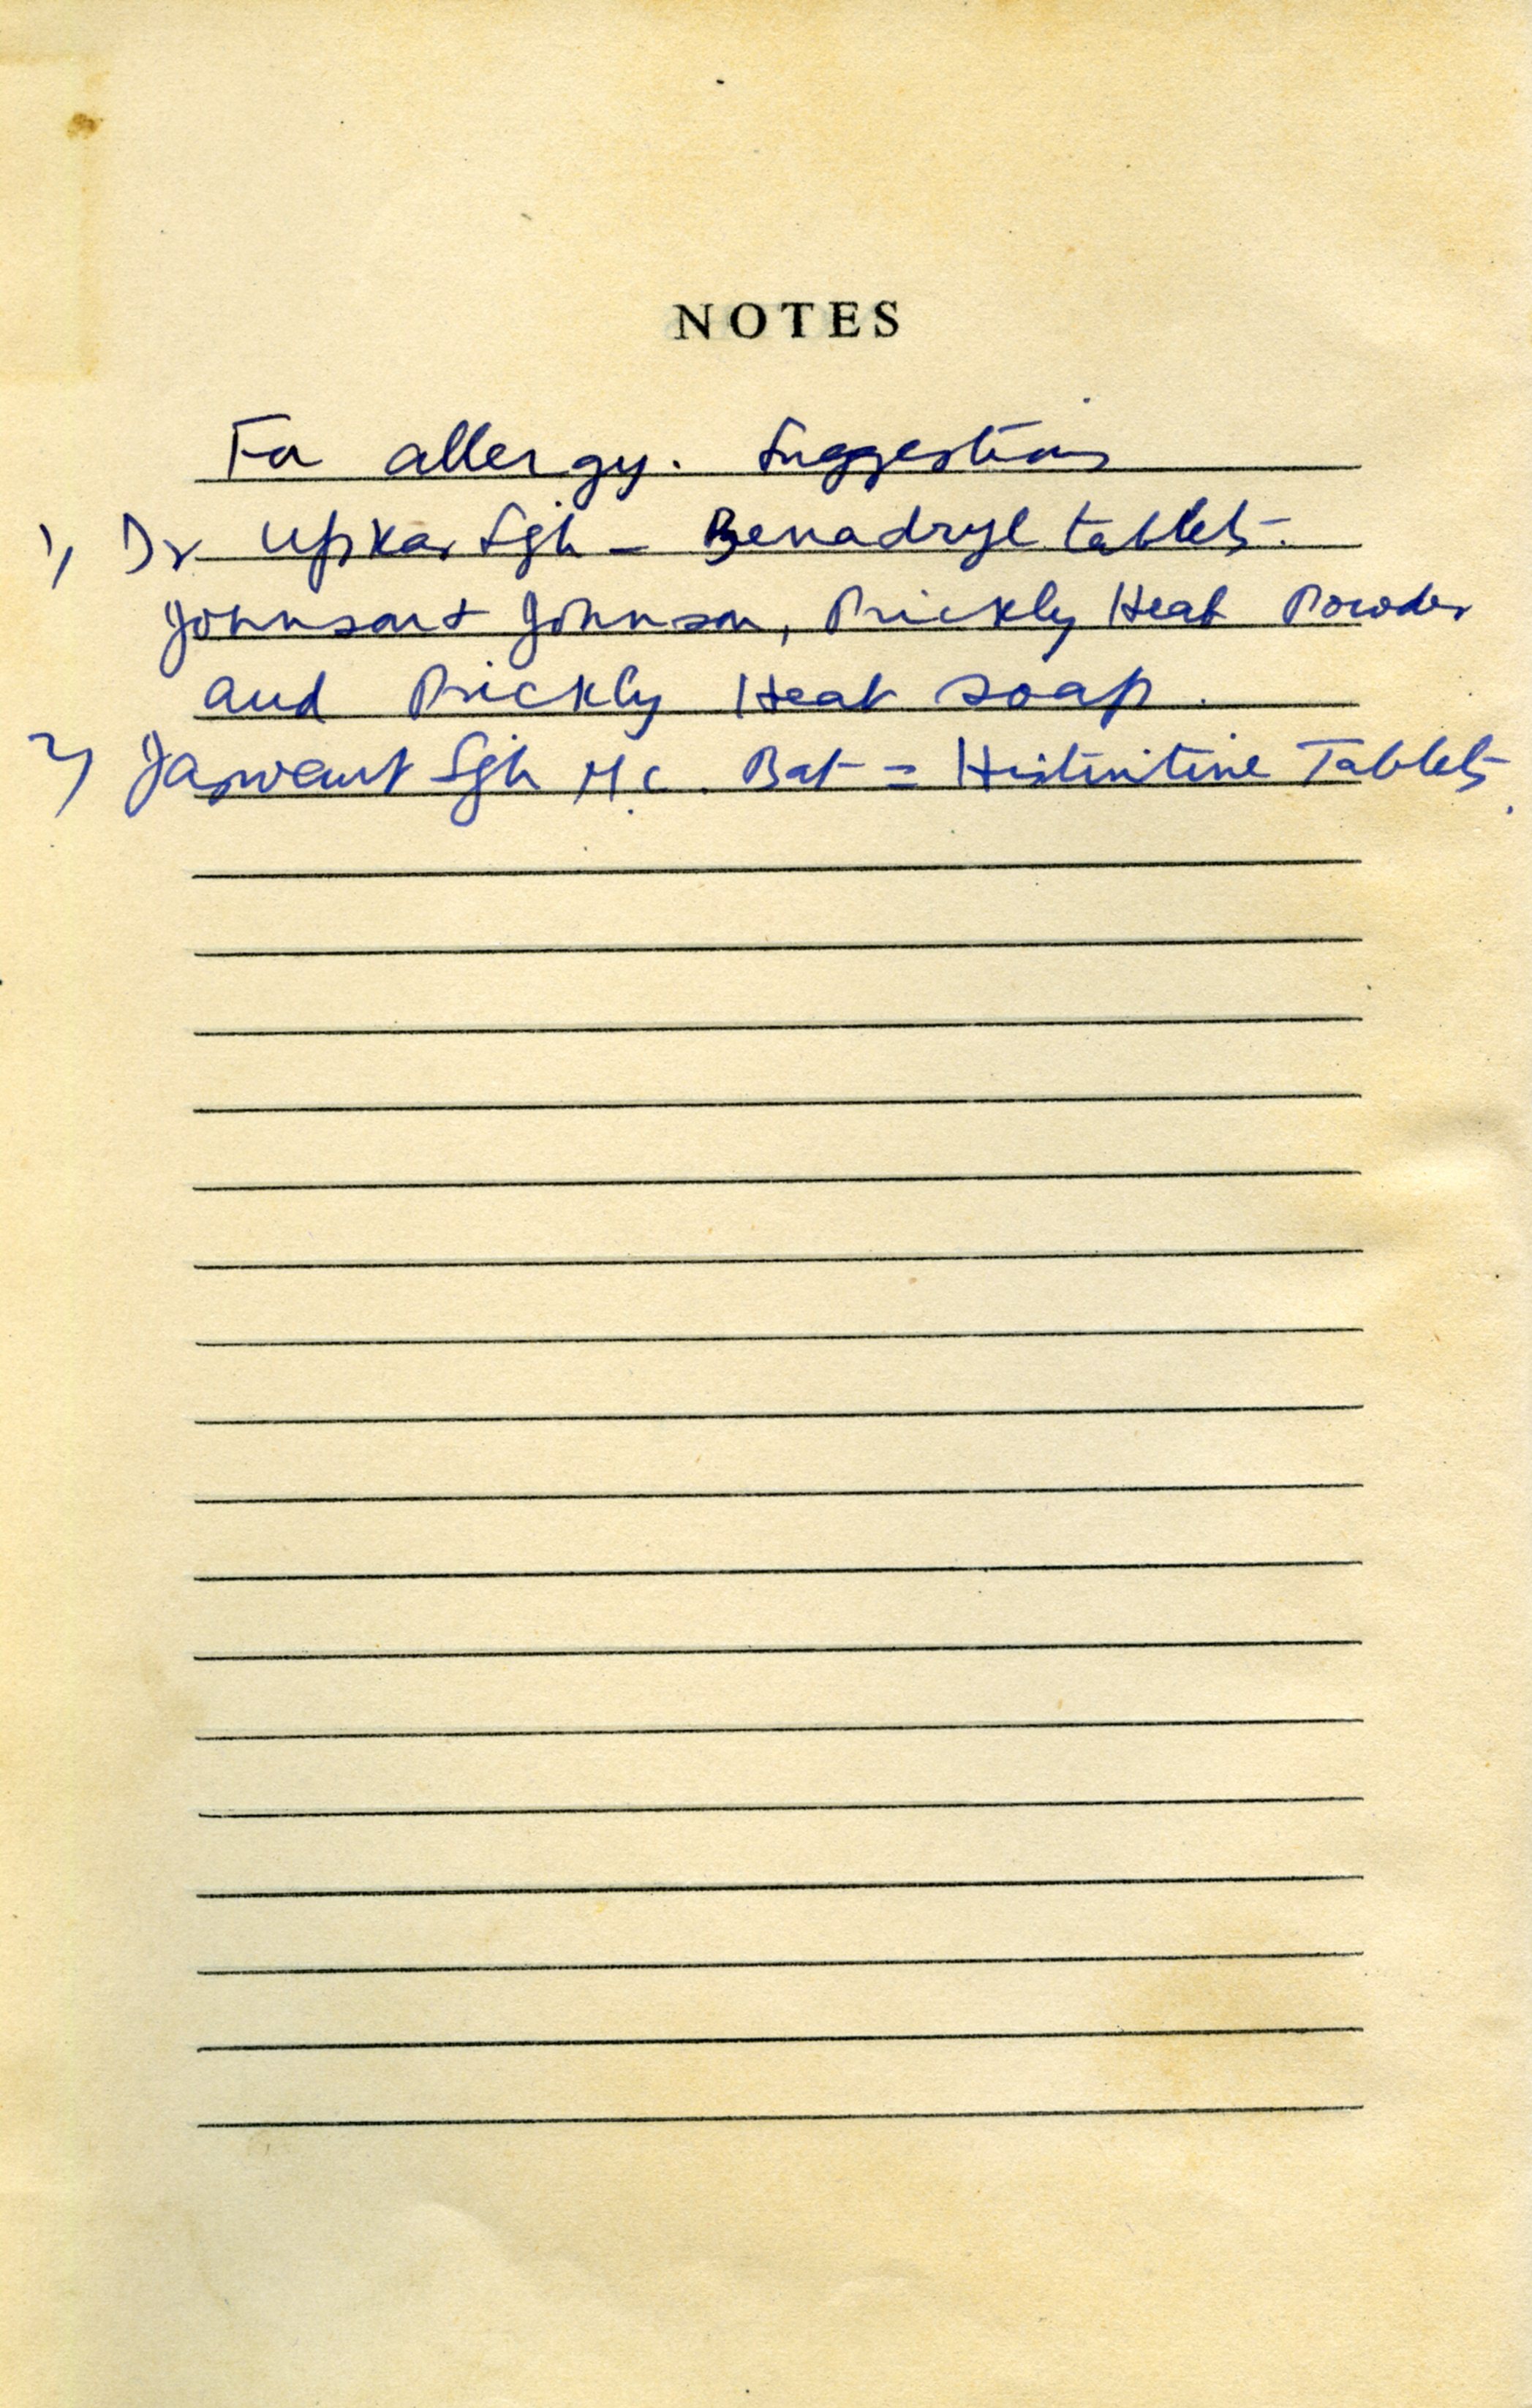 NOTES
For allergy. Suggestions
1) Dr Upkar Sgh - Benadryl tablets.
Johnson & Johnson, Prickly Heat Powder
and Prickly Heat soap.
2) Jaswant Sgh M.C. Bat = Tablets.